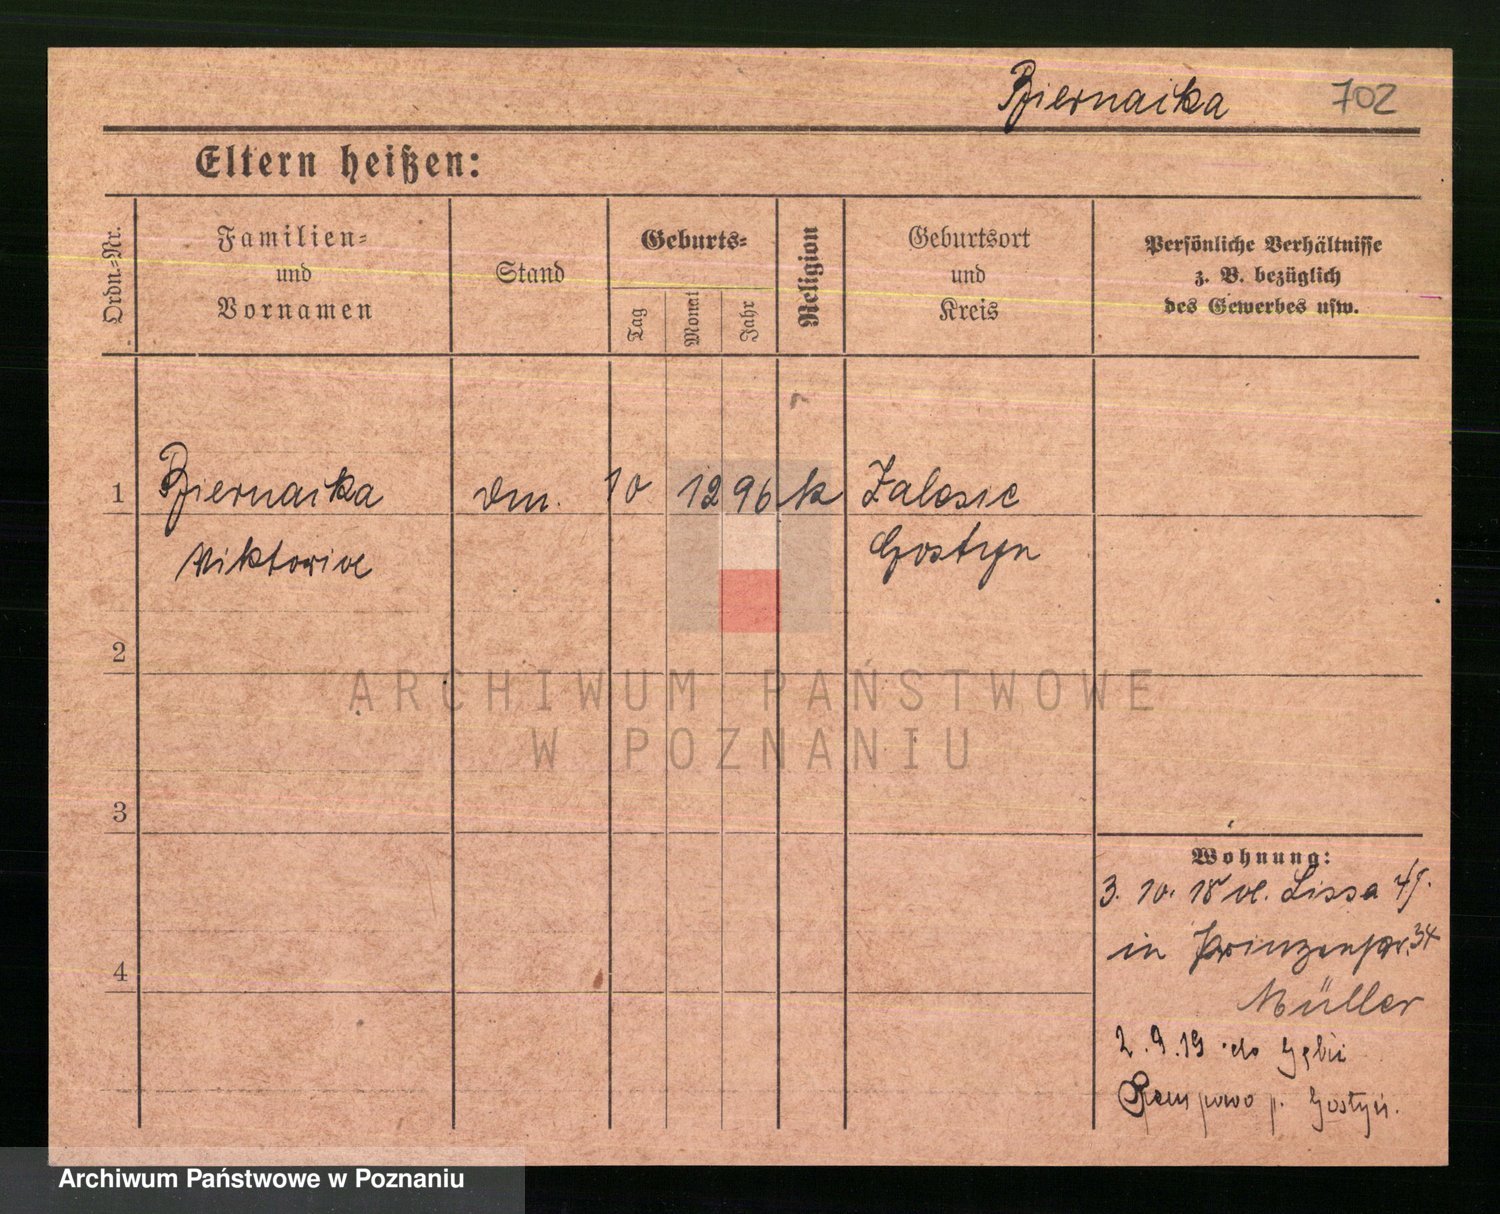 Biernacka 702
Eltern heißen:
Ordn.=Nr.
Familien=
und
Vornamen
Stand
Geburts=
Tag
Monat
Jahr
Religion
Geburtsort
und
Kreis
Persönliche Verhältnisse
z. B. bezüglich
des Gewerbes usw.
1 Biernacka dm. 10 12 96 k Zalesie
Viktoria Gostyn
2
3
4
Wohnung:
3. 10. 18 v. Lissa
in Prinzenstr. 34
Müller
2.9.19 do
p. Gostyń.
ARCHIWUM PAŃSTWOWE
W POZNANIU
Archiwum Państwowe w Poznaniu